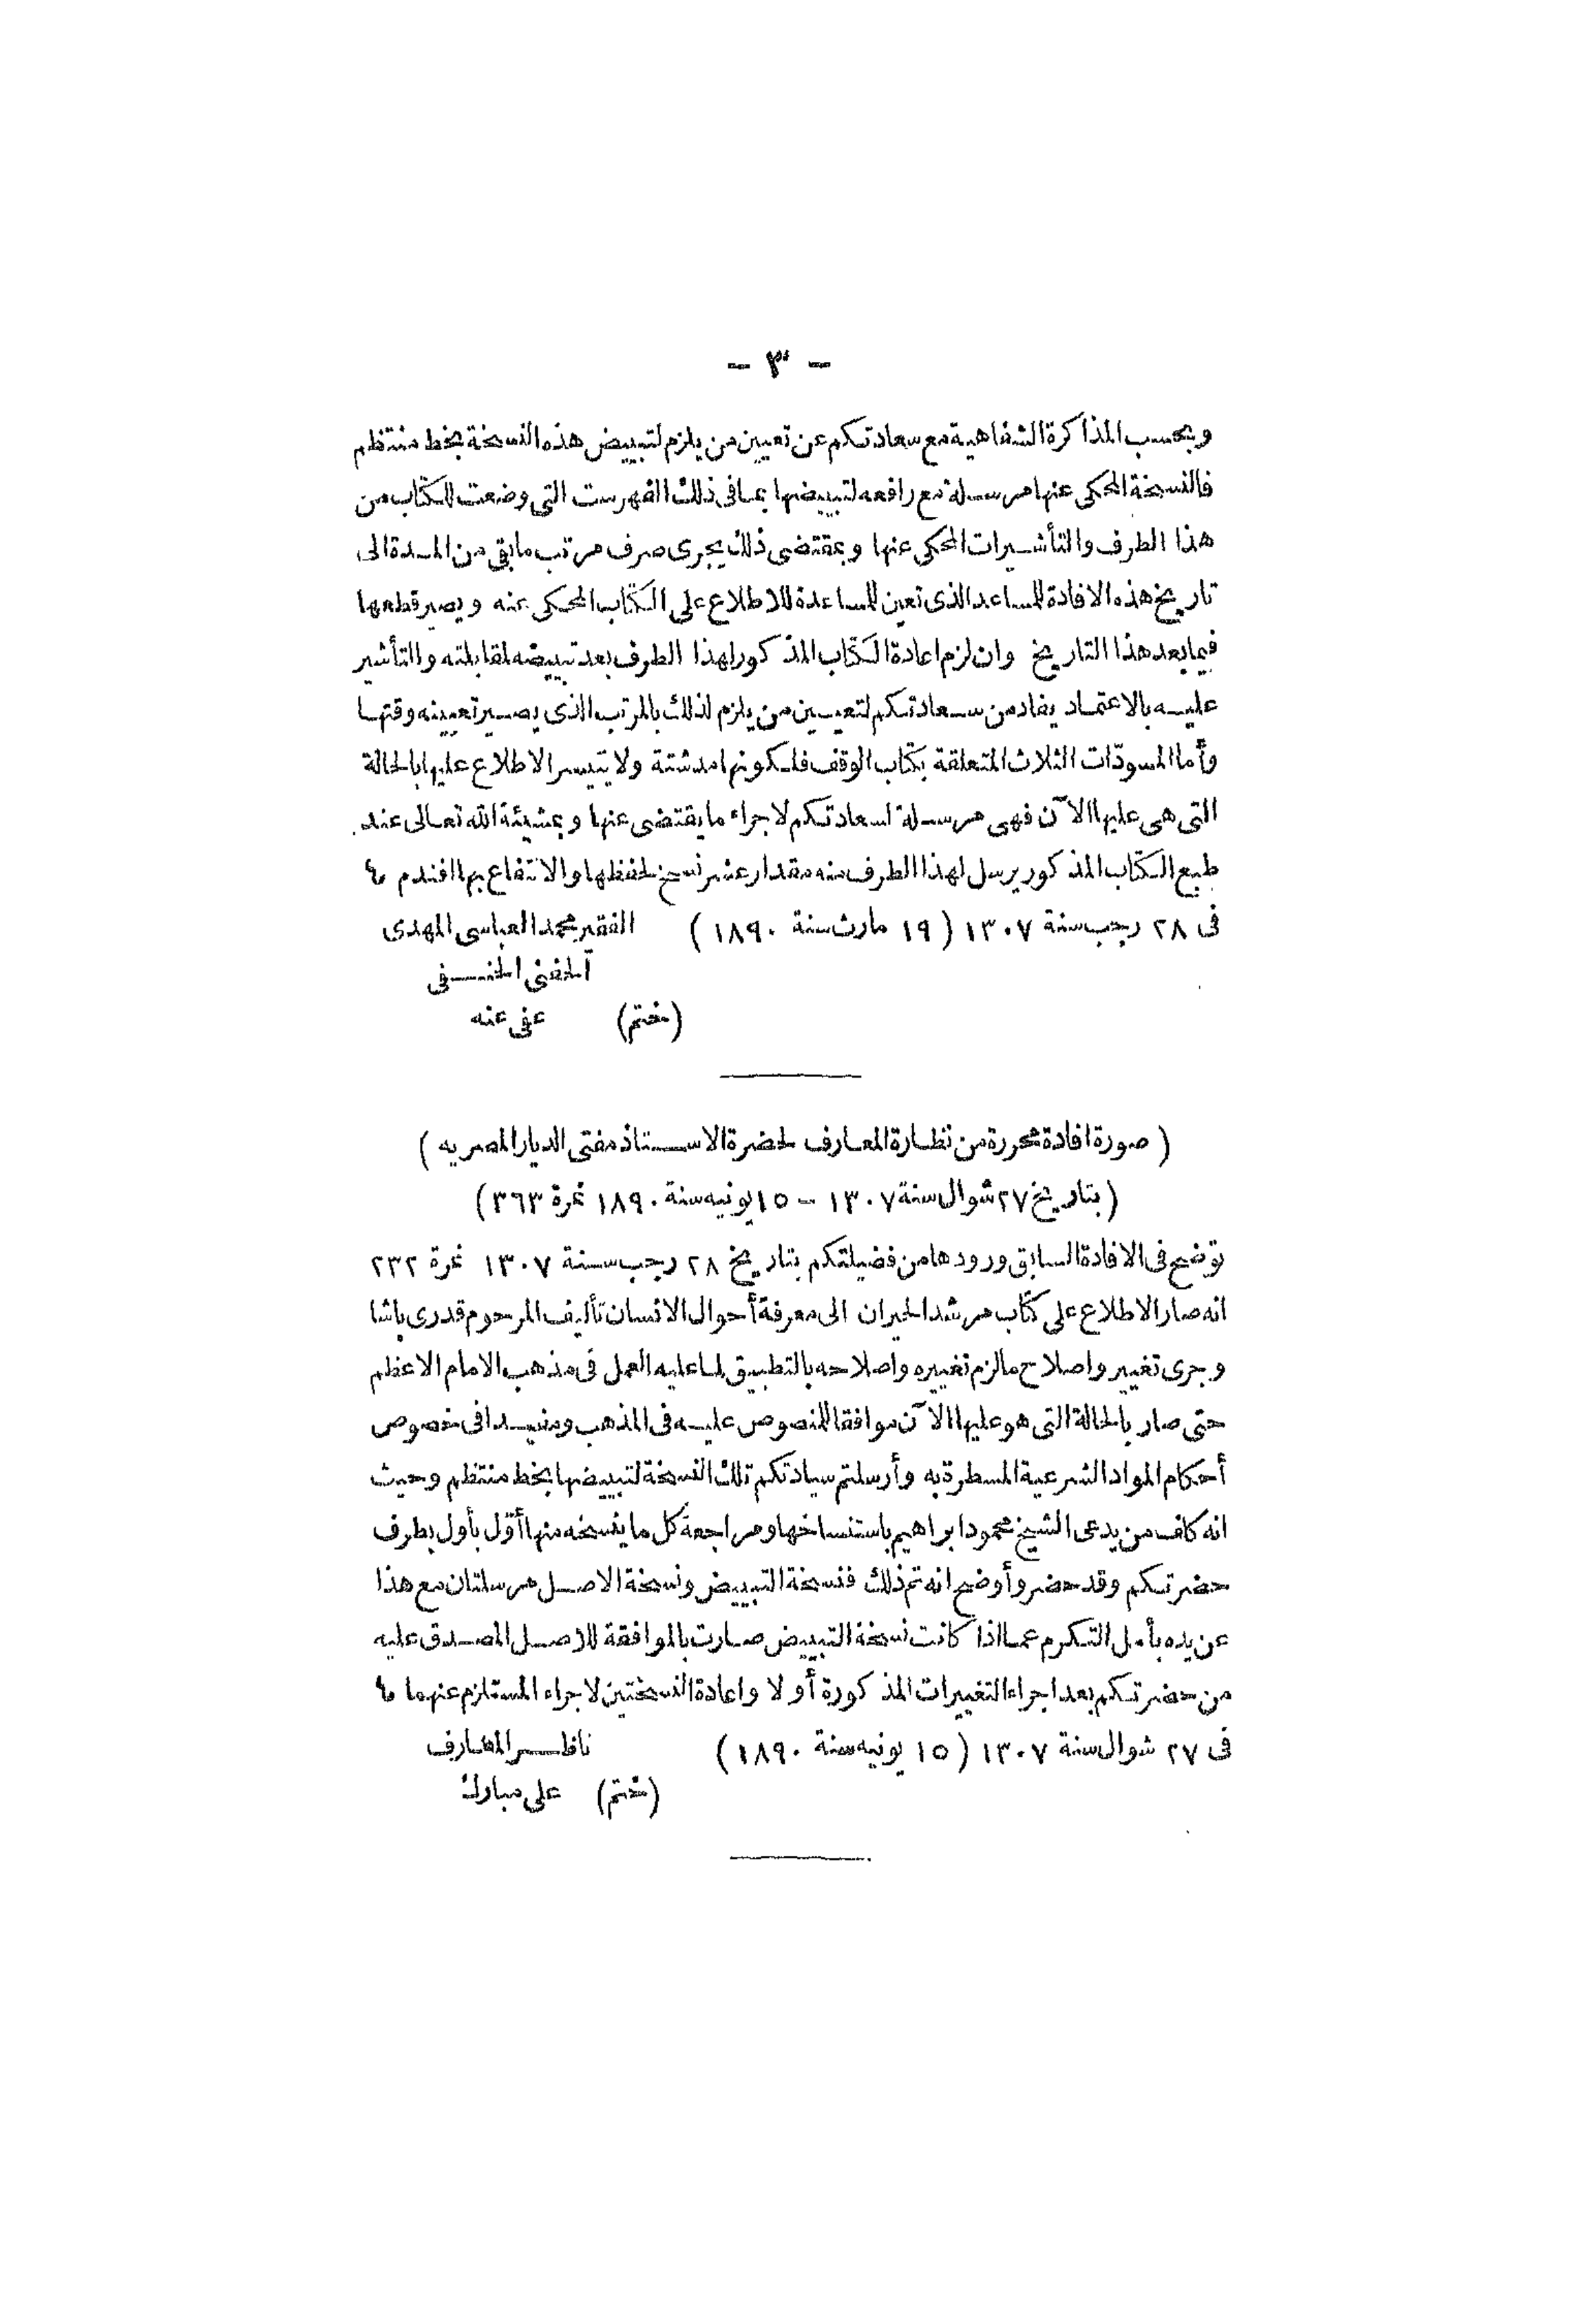 - ٣ -
وبحسب المذاكرة الشفاهية مع سعادتكم عن تعيين من يلزم لتبييض هذه النسخة بخط منتظم
فالنسخة المحكى عنها مرسلة مع رافعه لتبييضها بما فى ذلك الفهرست التى وضعت للكتاب من
هذا الطرف والتأشيرات المحكى عنها وبمقتضى ذلك يجرى صرف مرتب ما بقى من المدة الى
تاريخ هذه الافادة للمساعد الذى تعين للمساعدة للاطلاع على الكتاب المحكى عنه ويصير قطعها
فيما بعد هذا التاريخ وان لزم اعادة الكتاب المذكور لهذا الطرف بعد تبييضه لمقابلته والتأشير
عليه بالاعتماد يفاد من سعادتكم لتعيين من يلزم لذلك بالمرتب الذى يصير تعيينه وقتها
وأما المسودّات الثلاث المتعلقة بكتاب الوقف فلكونها مدشتة ولا يتيسر الاطلاع عليها بالحالة
التى هى عليها الآن فهى مرسلة لسعادتكم لاجراء ما يقتضى عنها وبمشيئة الله تعالى عند
طبع الكتاب المذكور يرسل لهذا الطرف منه مقدار عشر نسخ لحفظها والانتفاع بها افندم
فى ٢٨ رجب سنة ١٣٠٧ (١٩ مارث سنة ١٨٩٠) الفقير محمد العباسى المهدى
الحفنى الحنفى
(ختم) عفى عنه
(صورة افادة محررة من نظارة المعارف لحضرة الاستاذ مفتى الديار المصريه)
(بتاريخ ٢٧ شوال سنة ١٣٠٧ - ١٥ يونيه سنة ١٨٩٠ نمرة ٣٦٣)
توضح فى الافادة السابق ورودها من فضيلتكم بتاريخ ٢٨ رجب سنة ١٣٠٧ نمرة ٢٣٢
انه صار الاطلاع على كتاب مرشد الحيران الى معرفة أحوال الانسان تأليف المرحوم قدرى باشا
وجرى تغيير واصلاح ما لزم تغييره واصلاحه بالتطبيق لما عليه العمل فى مذهب الامام الاعظم
حتى صار بالحالة التى هو عليها الآن موافقا للمنصوص عليه فى المذهب ومفيدا فى خصوص
أحكام المواد الشرعية المسطرة به وأرسلتم سيادتكم تلك النسخة لتبييضها بخط منتظم وحيث
انه كلف من يدعى الشيخ محمود ابراهيم باستنساخها ومراجعة كل ما ينسخه منها أوّل بأول بطرف
حضرتكم وقد حضر وأوضح انه تم ذلك فنسخة التبييض ونسخة الاصل مرسلتان مع هذا
عن يده بأمل التكرم عما اذا كانت نسخة التبييض صارت بالموافقة للاصل المصدق عليه
من حضرتكم بعد اجراء التغييرات المذكورة أو لا واعادة النسختين لاجراء المستلزم عنهما
فى ٢٧ شوال سنة ١٣٠٧ (١٥ يونيه سنة ١٨٩٠) ناظر المعارف
(ختم) على مبارك